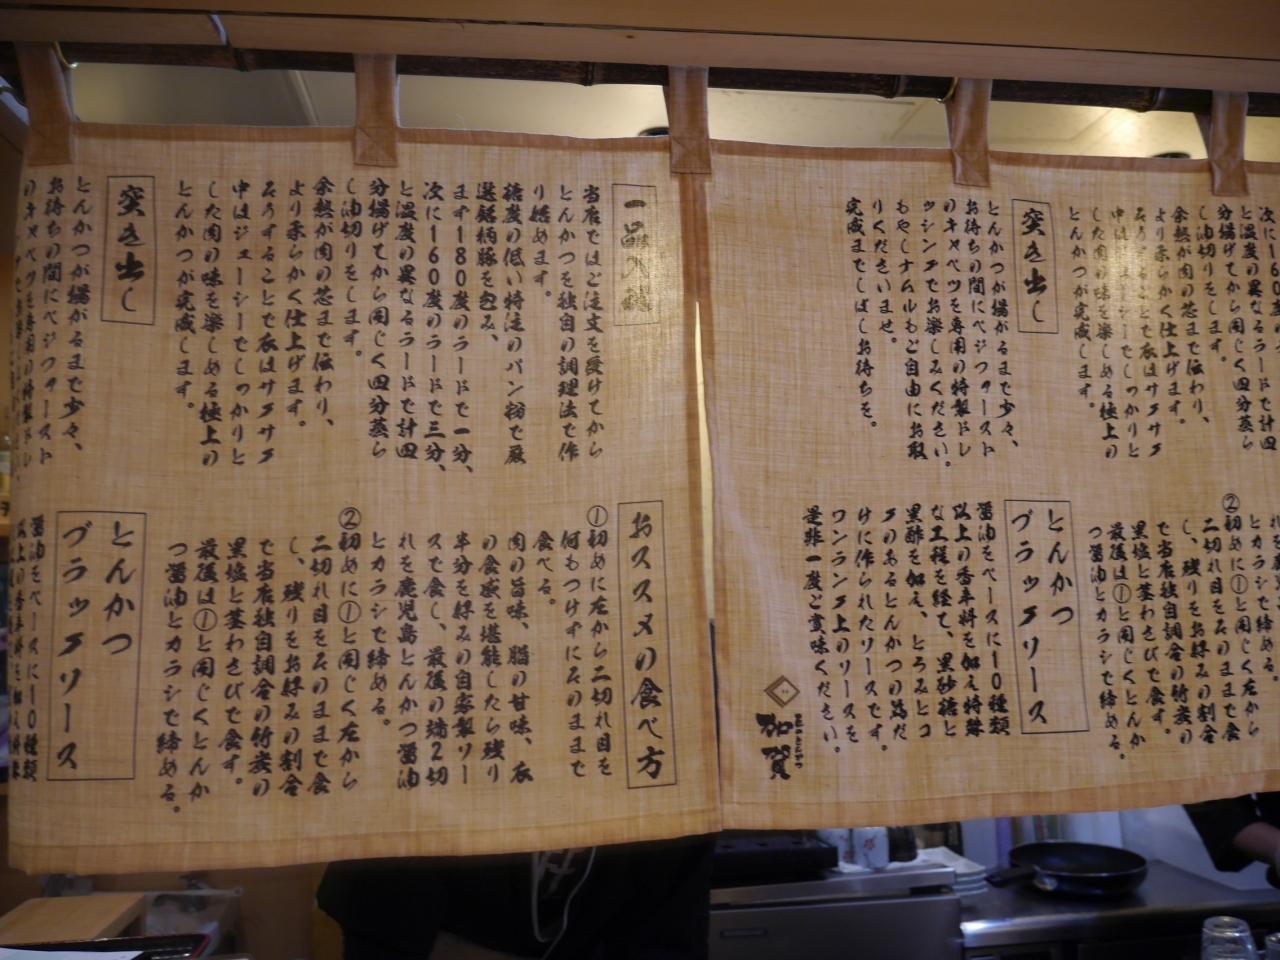 一品入魂
当店ではご注文を受けてから
とんかつを独自の調理法で作
り始めます。
糖度の低い特注のパン粉で厳
選銘柄豚を包み、
まず180度のラードで一分、
次に160度のラードで三分、
と温度の異なるラードで計四
分揚げてから同じく四分蒸ら
し油切りをします。
余熱が肉の芯まで伝わり、
より柔らかく仕上げます。
そうすることで衣はサクサク
中はジューシーでしっかりと
した肉の味を楽しめる極上の
とんかつが完成します。
突き出し
とんかつが揚がるまで少々、
お待ちの間にベジファースト
のキャベツを専用の特製ドレ
おススメの食べ方
①初めに左から二切れ目を
何もつけずにそのままで
食べる。
肉の旨味、脂の甘味、衣
の食感を堪能したら残り
半分を好みの自家製ソー
スで食し、最後の端2切
れを鹿児島とんかつ醤油
とカラシで締める。
②初めに①と同じく左から
二切れ目をそのままで食
し、残りをお好みの割合
で当店独自調合の竹炭の
黒塩と茎わさびで食す。
最後は①と同じくとんか
つ醤油とカラシで締める。
とんかつ
ブラックソース
醤油をベースに10種類
以上の香辛料を加え特殊
次に160度の
と温度の異なるラードで計四
分揚げてから同じく四分蒸ら
し油切りをします。
余熱が肉の芯まで伝わり、
より柔らかく仕上げます。
そうすることで衣はサクサク
中はジューシーでしっかりと
した肉の味を楽しめる極上の
とんかつが完成します。
突き出し
とんかつが揚がるまで少々、
お待ちの間にベジファースト
のキャベツを専用の特製ドレ
ッシングでお楽しみください。
もやしナムルもご自由にお取
りくださいませ。
完成までしばしお待ちを。
とカラシで締める。
②初めに①と同じく左から
二切れ目をそのままで食
し、残りをお好みの割合
で当店独自調合の竹炭の
黒塩と茎わさびで食す。
最後は①と同じくとんか
つ醤油とカラシで締める。
とんかつ
ブラックソース
醤油をベースに10種類
以上の香辛料を加え特殊
な工程を経て、黒砂糖と
黒酢を加え、とろみとコ
クのあるとんかつの為だ
けに作られたソースです。
ワンランク上のソースを
是非一度ご賞味ください。
加賀